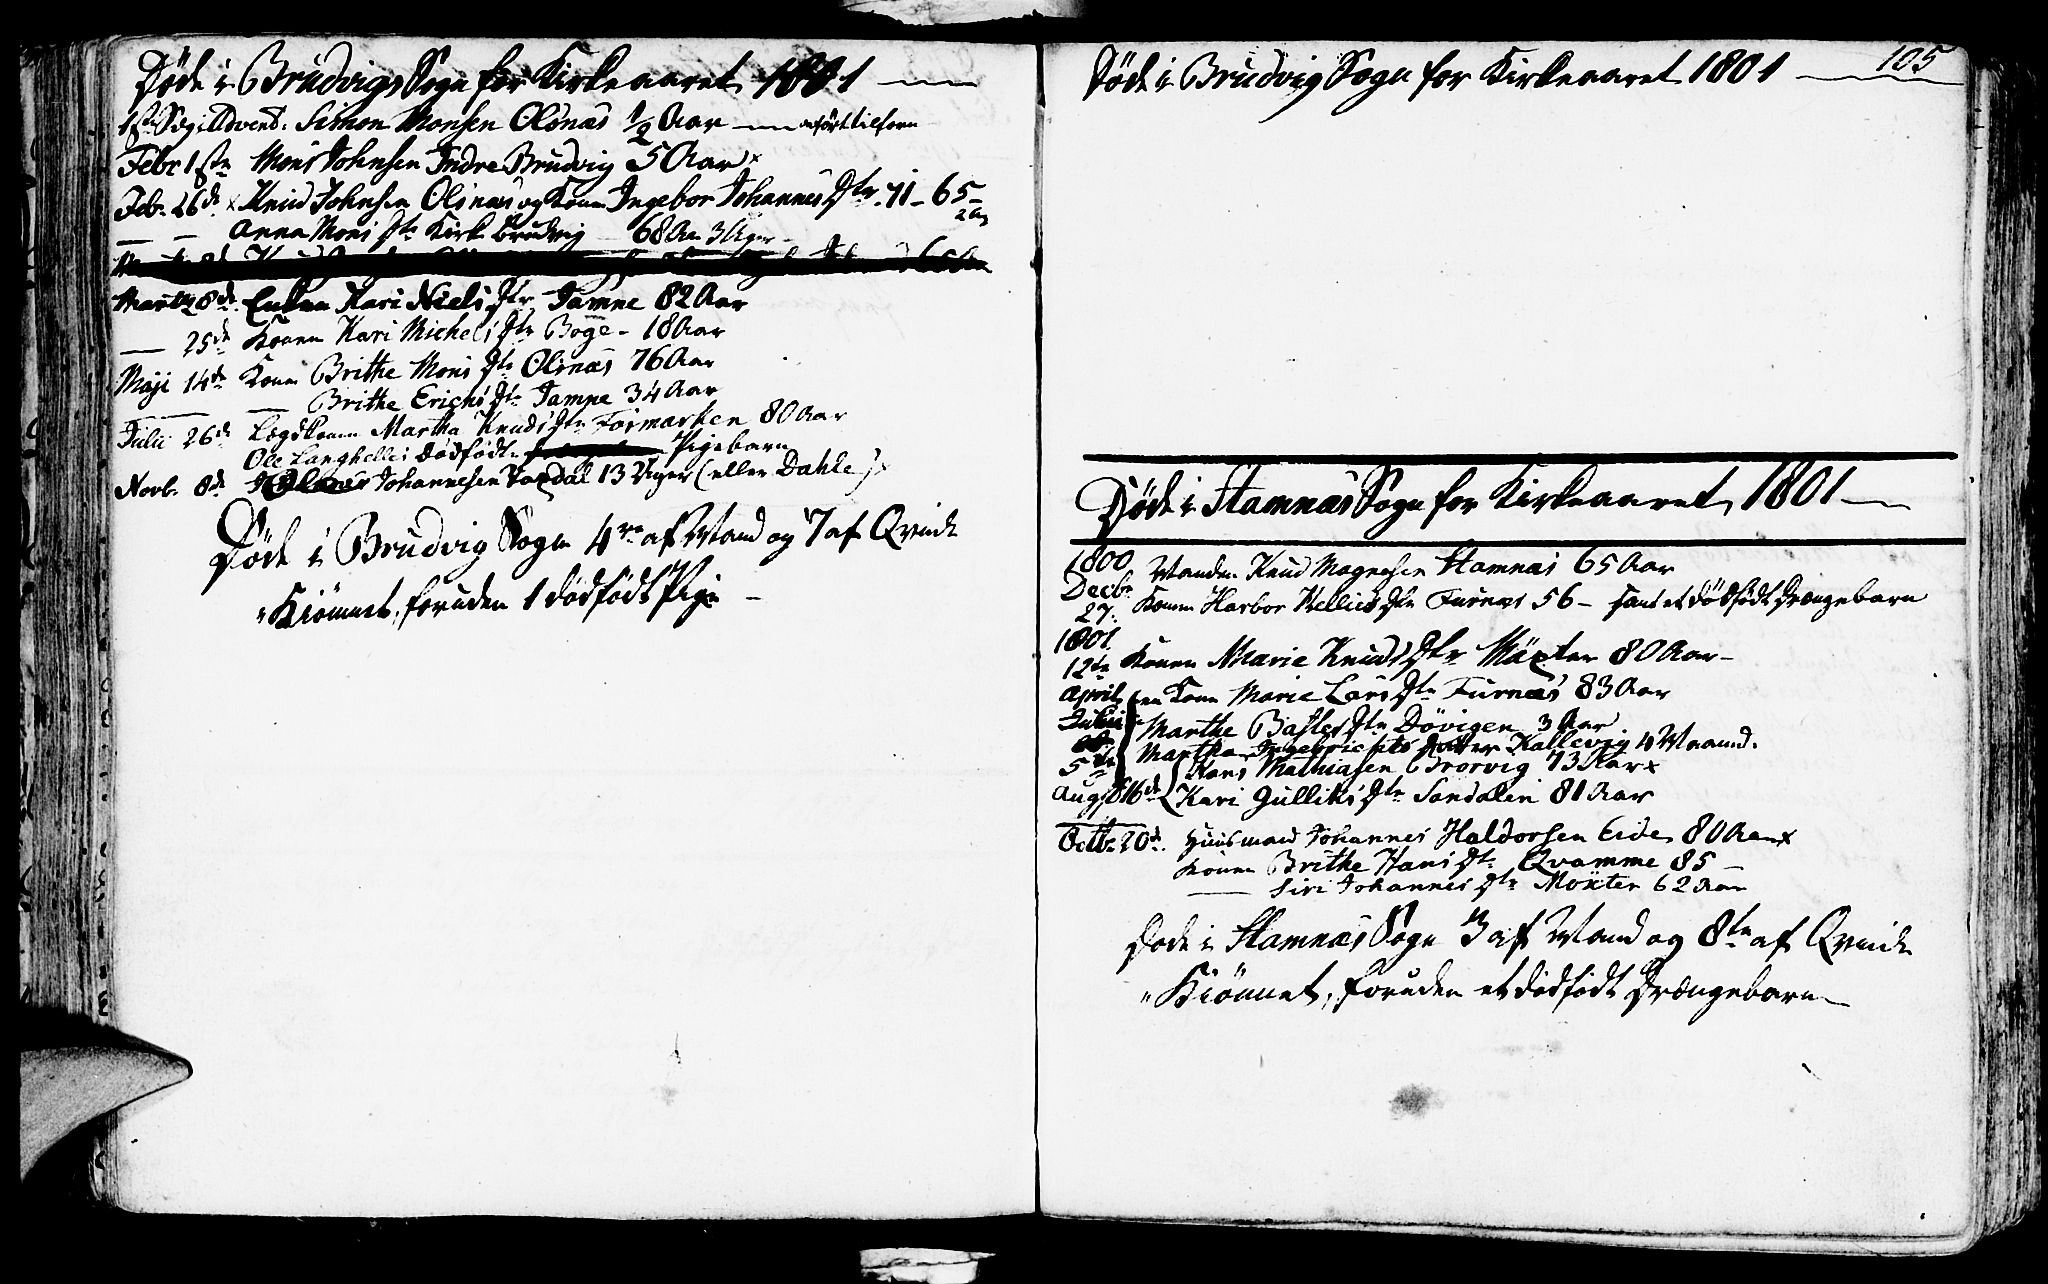 Döde i Brudvigs Sogn for Kirkeaaret 1801
1ste Søg i Advent. Simon Monsen Olsnæs 1/2 Aar anført tilforn
Febr 1ste Mons Johnsen Indre Brudvig 5 Aar x
Feb. 26de x Knud Johnsen Olsnæs og Konen Ingebor Johannes Dtr. 71 - 65
Anna Mons Dtr Kirk Brudvig 68 Aar 3 Uger
Martz 8de. Enken Kari Niels Dtr Jamne 82 Aar
25de Konen Kari Michels Dtr Boge - 18 Aar
Maji 14de Konen Brithe Mons Dtr Olsnæs 76 Aar
Brithe Erichs Dtr Jamne 34 Aar
Julii 26de Lægdkonen Martha Knuds Dtr Fosmarken 80 Aar
Ole Langhelles dödfödte Pigebarn
Novb. 8de Johannesen Vaxdal 13 Uger (eller Dahle) x
Döde i Brudvig Sogn 4re af Mand og 7 af Qvinde
"Kiönnet, foruden 1 dödfödt Pige -
105
Döde i Brudvig Sogn for Kirkeaaret 1801
Döde i Stamnæs Sogn for Kirkeaaret 1801
1800
Decbr. Manden Knud Magnesen Stamnæs 65 Aar
27. Konen Harbor Nellius Dtr Furnæs 56 - samt et dödfödt Drængebarn
1801
12te Konen Marie Knuds Dtr Mäxter 80 Aar -
April en Kone Marie Lars Dtr Furnæs 83 Aar
Julii Marthe Dtr Dövigen 3 Aar
Martha Ingebrichts Dotter Kallevig 4 Maaned.
5te Hans Mathiasen Brorvig 73 Aar x
Aug. 16de Kari Gulliks Dtr Sandalen 81 Aar
Octb. 20de. Huusmand Johannes Haldorsen Eide 80 Aar x
Konen Brithe Hans Dtr Qvamme 85 -
Siri Johannes Dtr Möxter 62 Aar
Döde i Stamnæs Sogn 3 af Mand og 8te af Qvinde
"Kiönnet, foruden et dödfödt Drængebarn -